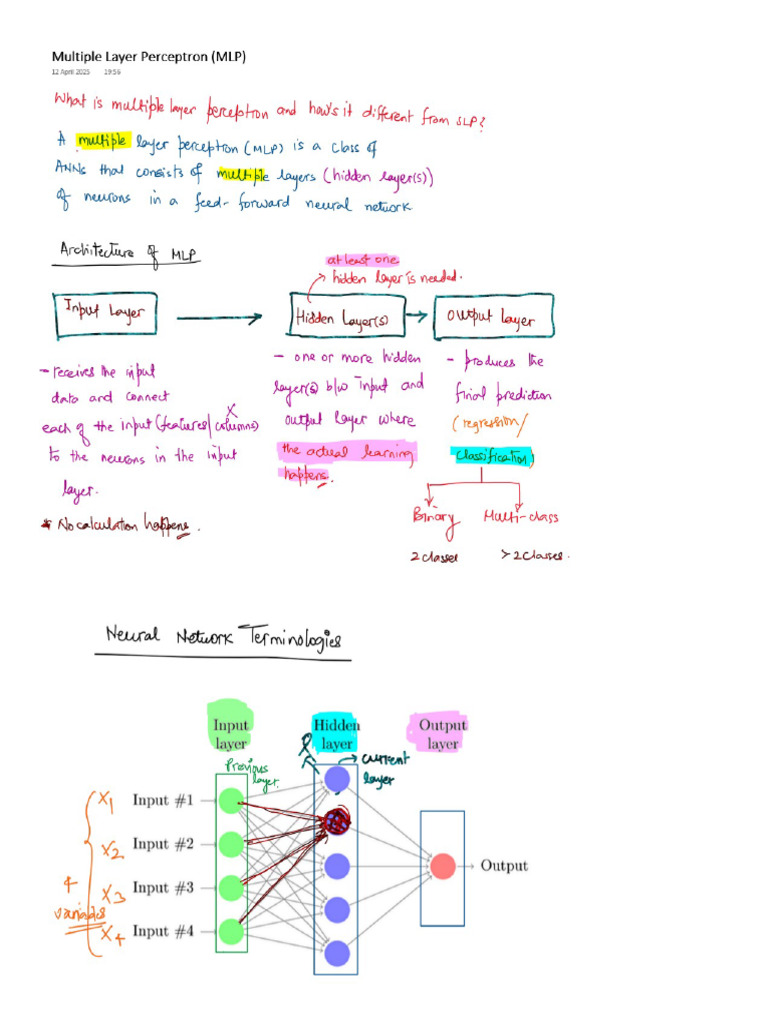 Multiple Layer Perceptron (MLP)
12 April 2025 19:56
What is multiple layer perceptron and how's it different from SLP?
A multiple layer perceptron (MLP) is a class of
ANNs that consists of multiple layers (hidden layer(s))
of neurons in a feed-forward neural network
Architecture of MLP
at least one
hidden layer is needed.
Input Layer
Hidden Layer(s)
Output layer
- receives the input
data and connect
each of the input (features/columns) X
to the neurons in the input
layer.
* No calculation happens.
- one or more hidden
layer(s) b/w input and
output layer where
the actual learning
happens.
- produces the
final prediction
(regression/
classification)
Binary
Multi-class
2 classes
> 2 classes.
Neural Network Terminologies
Input
layer
Hidden
layer
Output
layer
Previous
layer
l
current
layer
4
variables
X1
X2
X3
X4
Input #1
Input #2
Input #3
Input #4
Output